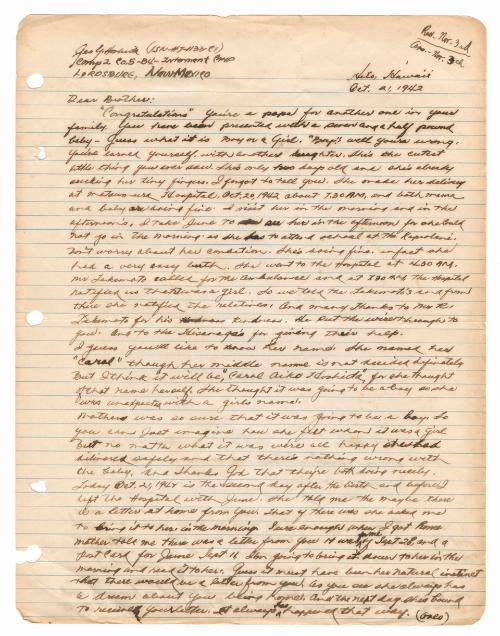 Geo Y. Hoshida (ISN-HJ-1132-CI)
Comp 2 Co. 5-B4- Internment Camp
LORDSBURG, NEW MEXICO
Rec. Nov. 3rd
Ans. Nov. 3rd
Hilo, Hawaii
Oct. 21, 1942
Dear Brother:
"Congratulations" You're a papa for another one in your
family. You have been presented with a seven and a half pound
baby - Guess what it is Boy or a Girl. "Boy," well you're wrong.
You've earned yourself with another daughter. She's the cutest
little thing you ever saw. She's only two days old and she's already
sucking her tiny fingers. I forgot to tell you. She made her delivery
at Hospital, Oct. 20, 1942 about 7:30 A.M. and both mama
and baby are doing fine. I visit her in the morning and in the
afternoon's. I take June to see her in the afternoon for she could
not go in the morning as she has to attend school at the
Don't worry about her condition. She's doing fine. In fact she
had a very easy birth. She went to the Hospital at 4:30 A.M.
Mr Takemoto called for the Ambulance and at 7:30 A.M. the Hospital
notified us that it was a girl. So we told the Takemoto's and from
there she notified the relatives. And many thanks to Mr K.
Takemoto for his kindness. He put the wire through to
you. And to the for giving their help.
I guess you'd like to know her name. She named her
"Carol" though her middle name is not decided definitely
But I think it will be, "Carol Aiko Hoshida", for she thought
of that name herself. She thought it was going to be a boy so she
was unexpected with a girls name.
Mother was so sure that it was going to be a boy. So
you can just imagine how she felt when it was a Girl
But no matter what it was were all happy she had
delivered safely and that there's nothing wrong with
the baby. And thanks God that they're both doing nicely.
Today Oct. 21, 1942 is the second day after the birth and before I
left the Hospital with June. She told me the maybe there
is a letter at home from you. That if there was she asked me
to bring it to her in the morning. Sure enough when I got home
mother told me there was a letter from you Sept. 28, and a
post card for June Sept 11. I'm going to bring it down to her in the
morning and read it to her. Guess it must have been her natural instinct
that there would be a letter from you. As you see she always has
a dream about you being home. And the next day she's bound
to receive your letter. It always has happened that way. (Over)